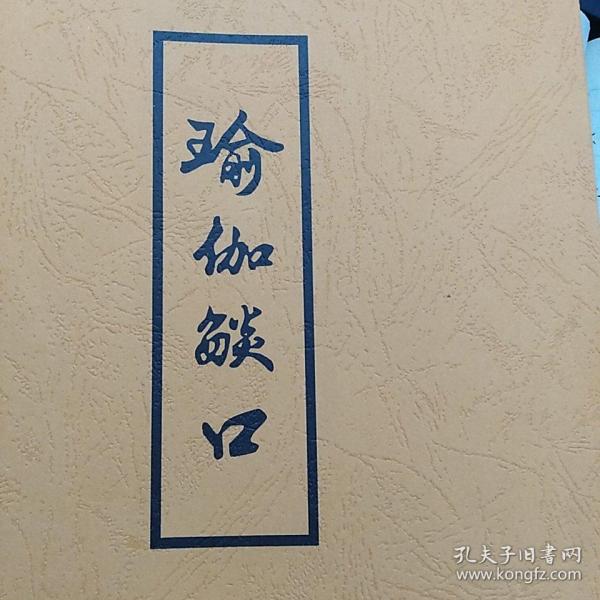 瑜伽燄口
孔夫子旧書网
www.kongfz.com